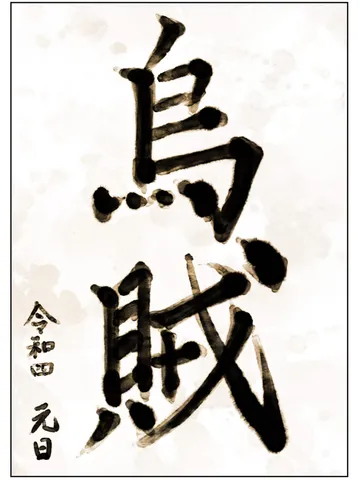 烏賊
令和四 元日